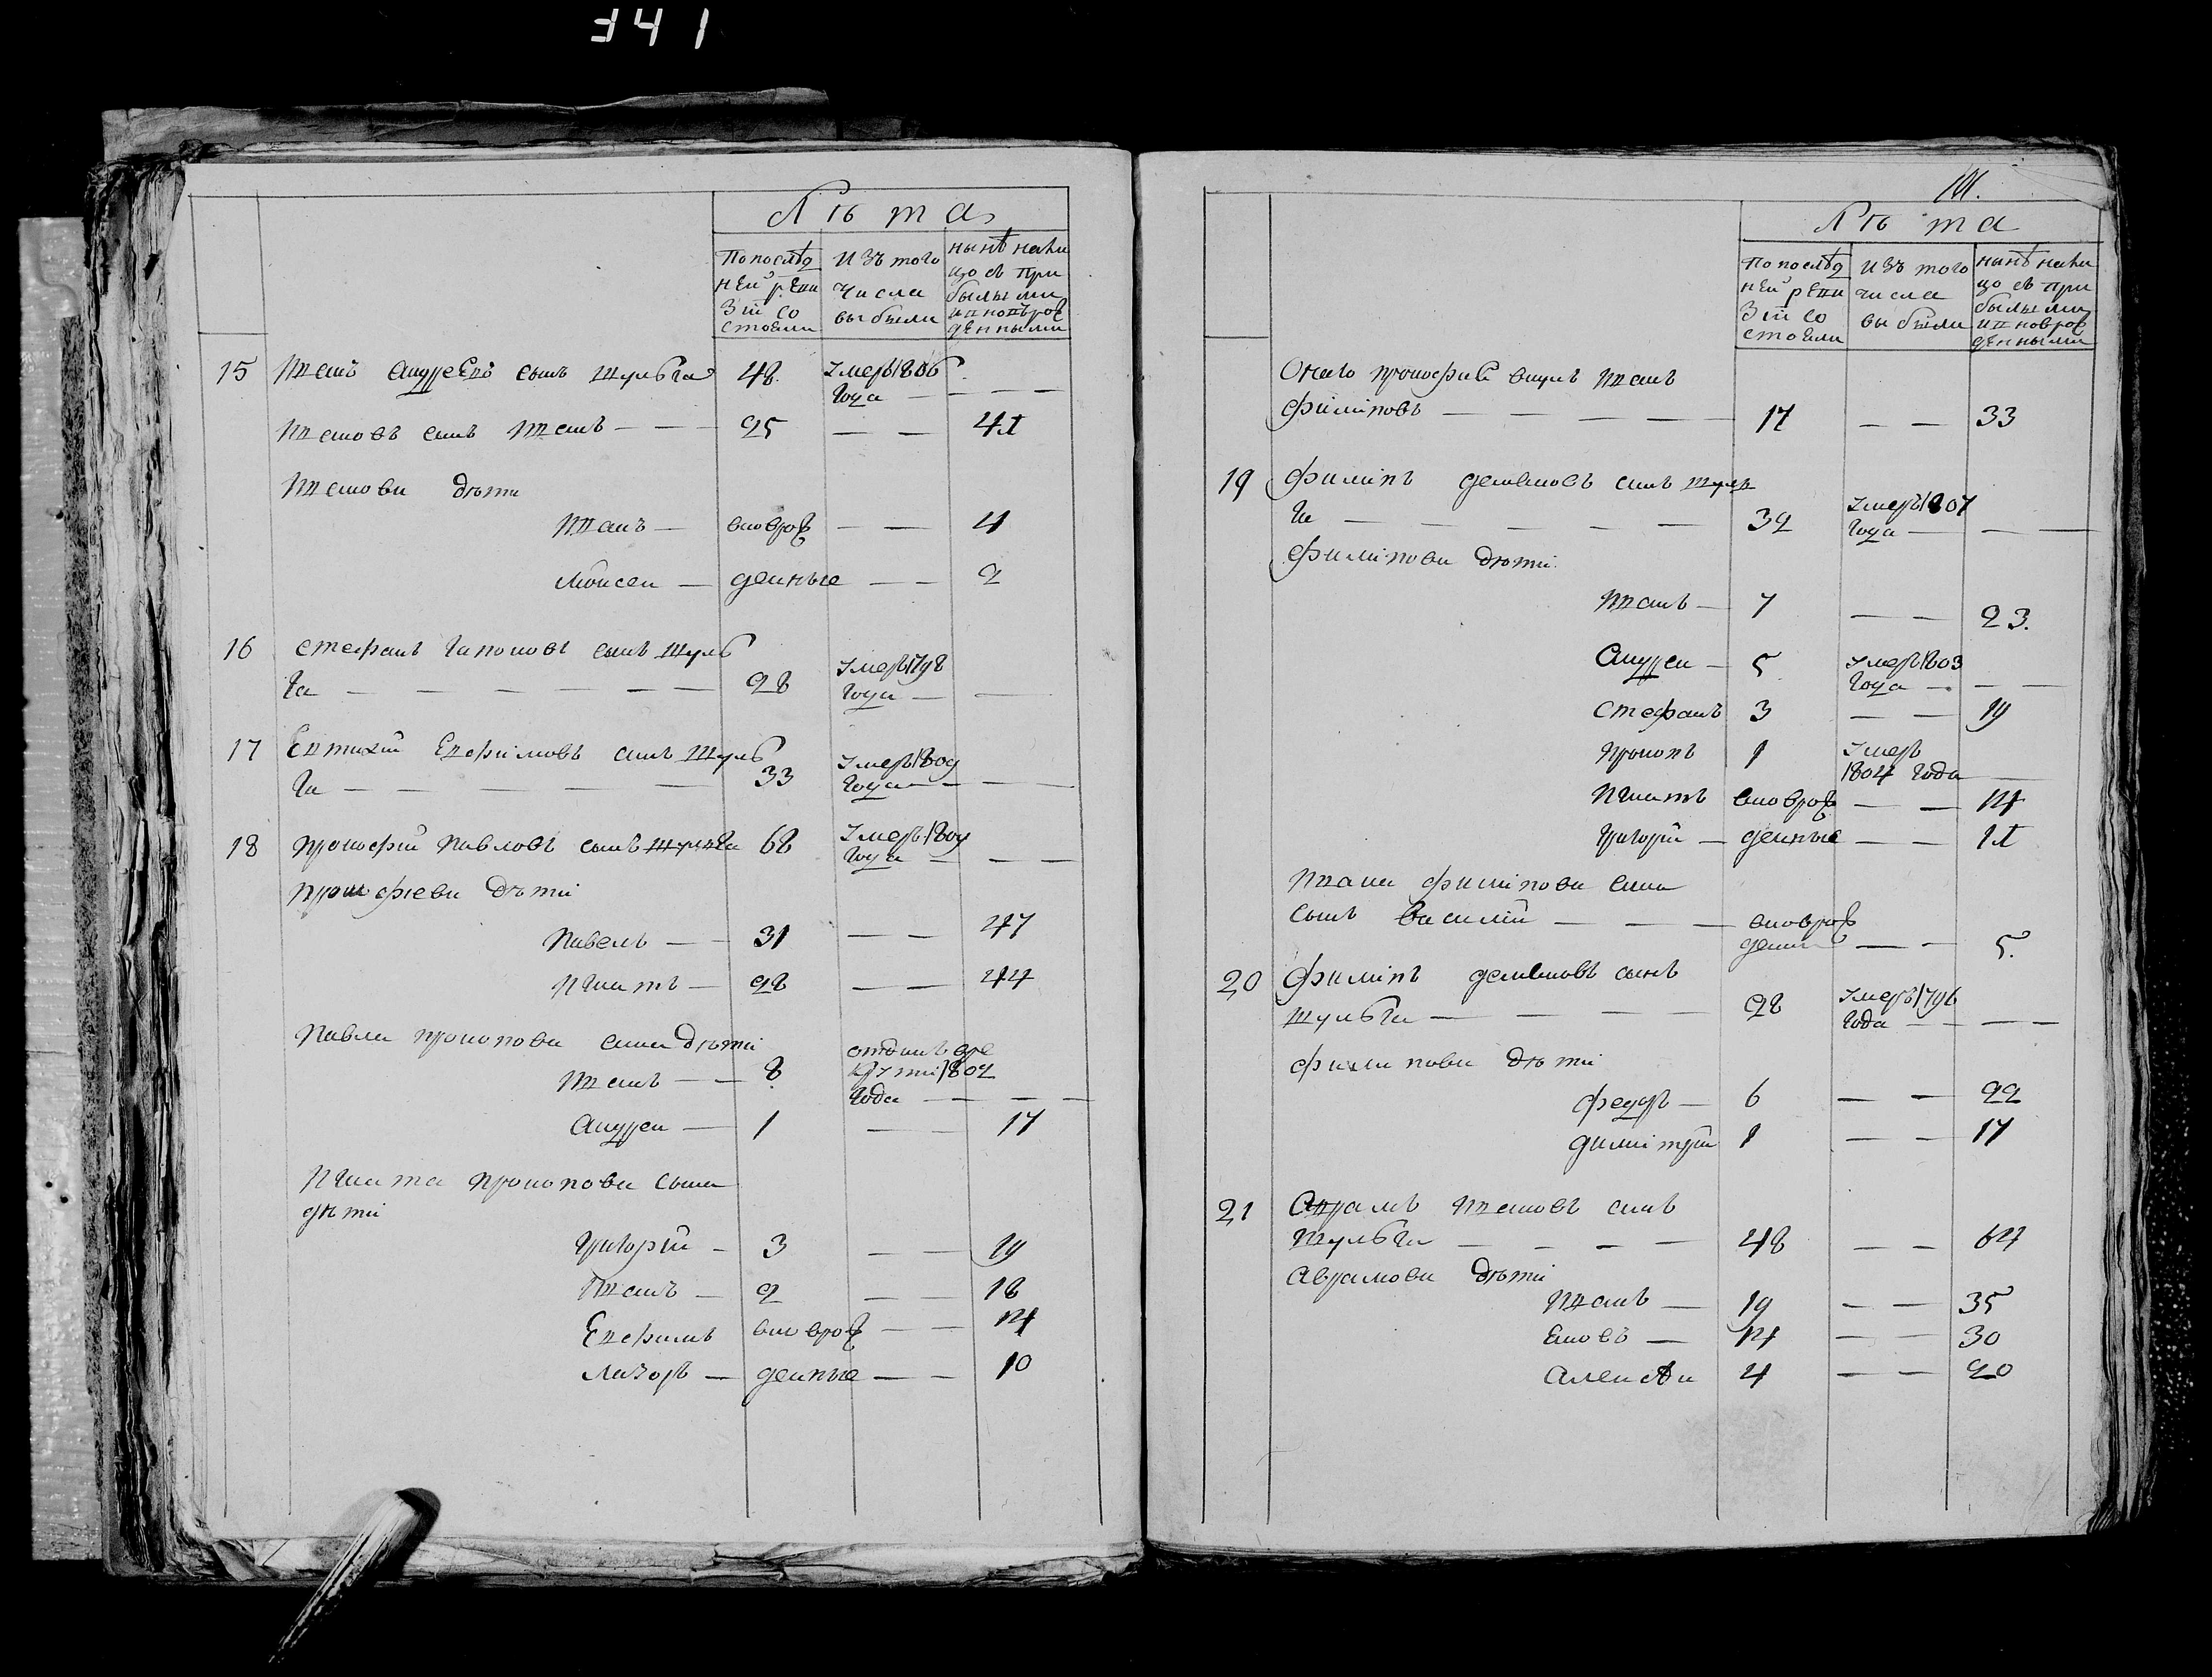 341
Лѣта
По послѣд
ней реви
зіи со
стояли
Изъ того
числа
выбыли
Нынѣ на ли
цо съ при
былыми
и новорож
денными
15 Иванъ Андреевъ сынъ Шульга 48 Умеръ 1806
года — — —
Ивановъ сынъ Иванъ — — 25 — — 41
Ивановы дѣти
Иванъ — новорож — — 4
Моисей — денные — — 2
16 Стефанъ Гапоновъ сынъ Шуль
га — — — — — — 28 Умеръ 1798
года — —
17 Евтихій Ефимовъ сынъ Шуль
га — — — — — 33 Умеръ 1809
года — —
18 Прокофій Павловъ сынъ Шульга 68 Умеръ 1809
года — — —
Прокофіеви дѣти
Павелъ — — 31 — — 47
Игнатъ — 28 — — 44
Павла Прокопова сына дѣти
Иванъ — — 8 отданъ вре
круты 1802
года — — — —
Андрей — 1 — 17
Игната Прокопова сына
дѣти
Григорій — 3 — — 19
Иванъ — 2 — — 18
Евфимъ новорож — — 14
Лазоръ — денные — — 10
141.
Лѣта
По послѣд
ней реви
зіи со
стояли
Изъ того
числа
выбыли
Нинѣ на ли
цо съ при
былыми
и новорож
денными
Онаго Прокофія внукъ Иванъ
Филіповъ — — — — 17 — — 33
19 Филіпъ Демяновъ сынъ Шуль
га — — — — — 32 Умеръ 1807
года — — —
Филіпови дѣти
Иванъ — 7 — — 23.
Андрей — 5 Умеръ 1803
года — — —
Стефанъ 3 — — 19
Прокопъ 1 Умеръ
1804 года —
Игнатъ новорож — — 14
Григорій — денные — — 11
Ивана Филіпова сына
сынъ Василій — — — новорож
денный — — 5.
20 Филіпъ Демяновъ сынъ
Шульга — — — — 28 Умеръ 1796
года — — — —
Филипови дѣти
Федоръ — 6 — — 22
Димітрій 1 — — 17
21 Аврамъ Ивановъ сынъ
Шульга — — — — 48 — — 64
Аврамови дѣти
Иванъ — 19 — — 35
Яковъ — 14 — — 30
Алексѣй 4 — — 20